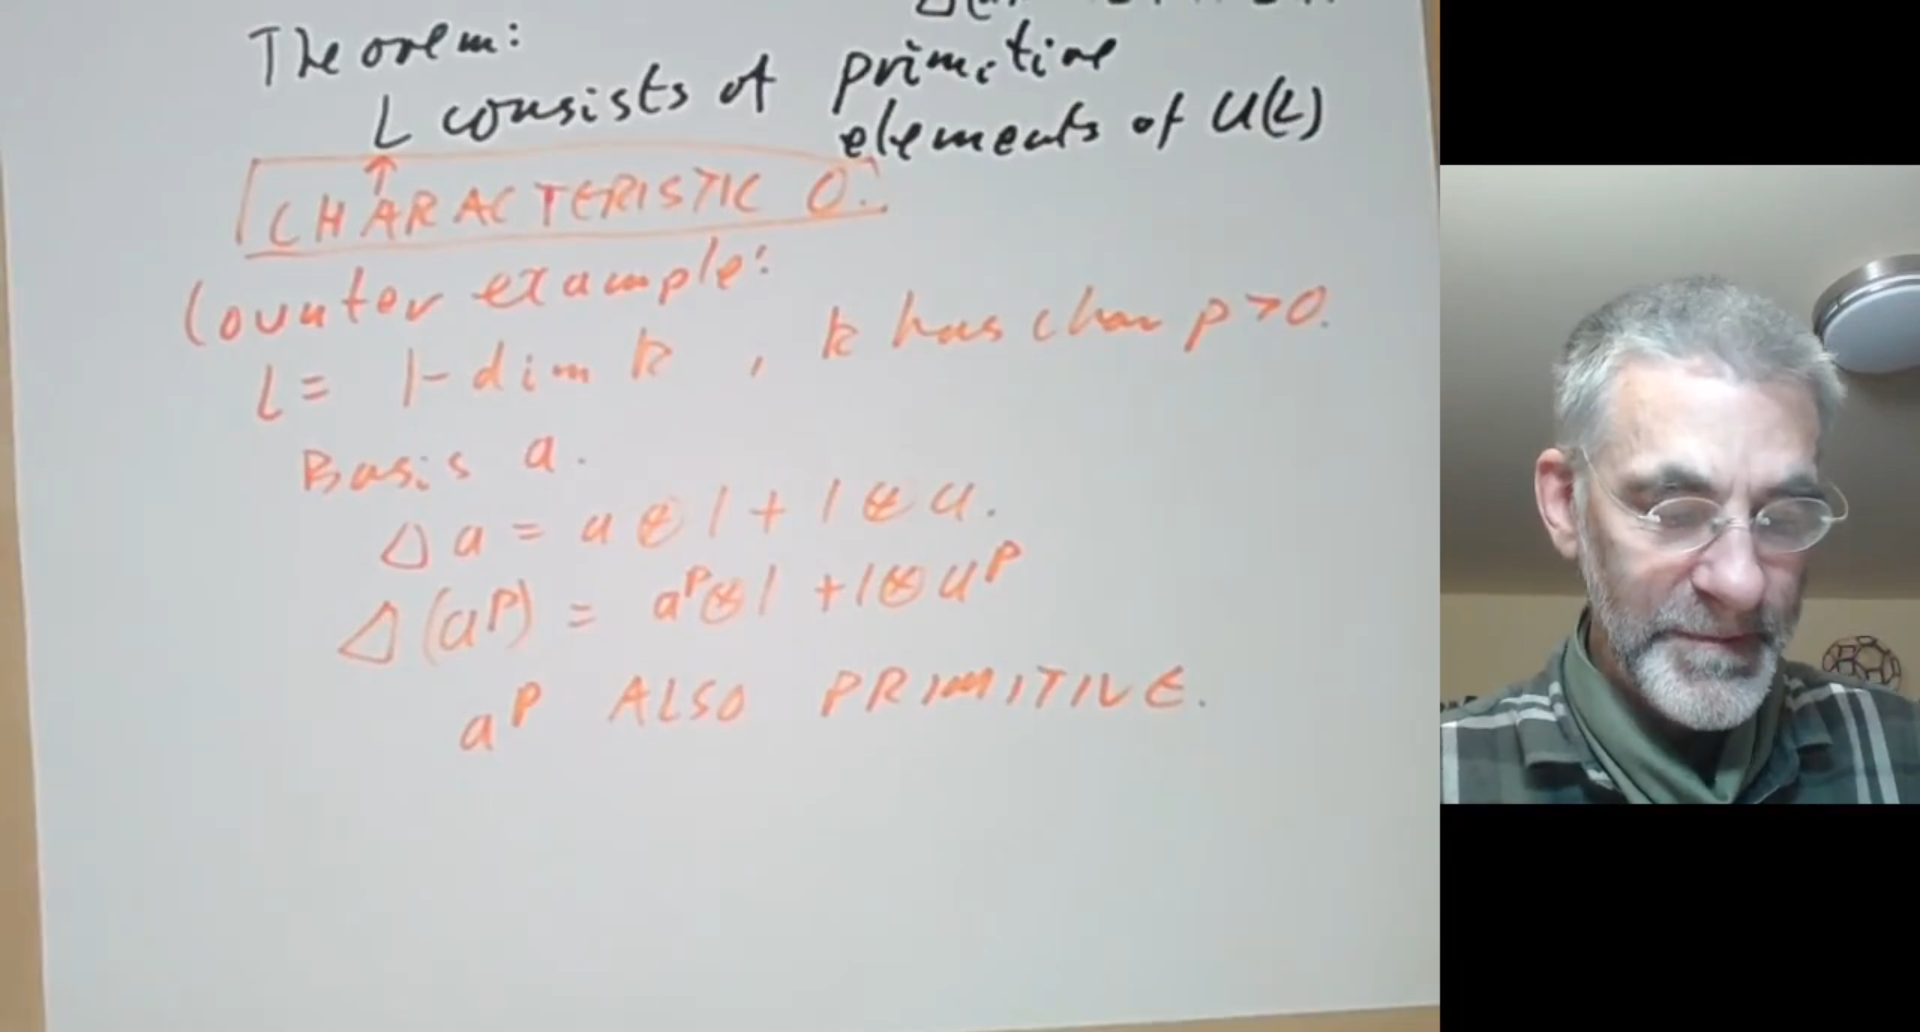 Theorem:
L consists of primitive
elements of U(L)
CHARACTERISTIC 0.
Counter example:
L = 1-dim k, k has char p>0.
Basis a.
Δa = a⊗1 + 1⊗a.
Δ(a^p) = a^p⊗1 + 1⊗a^p
a^p ALSO PRIMITIVE.